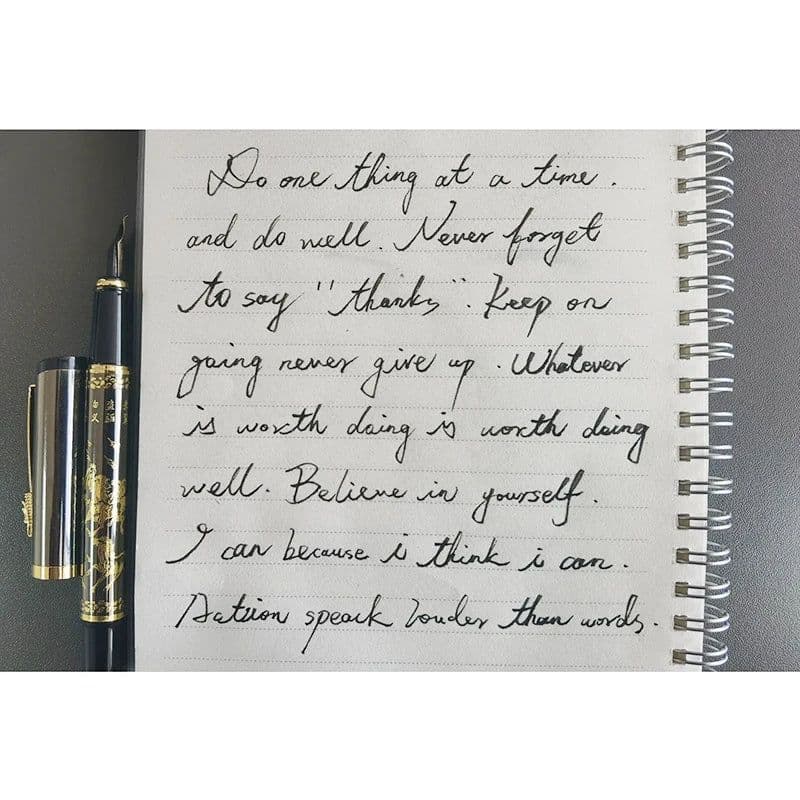 Do one thing at a time.
and do well. Never forget
to say "thanks". Keep on
going never give up. Whatever
is worth doing is worth doing
well. Believe in yourself.
I can because i think i can.
Action speack louder than words.